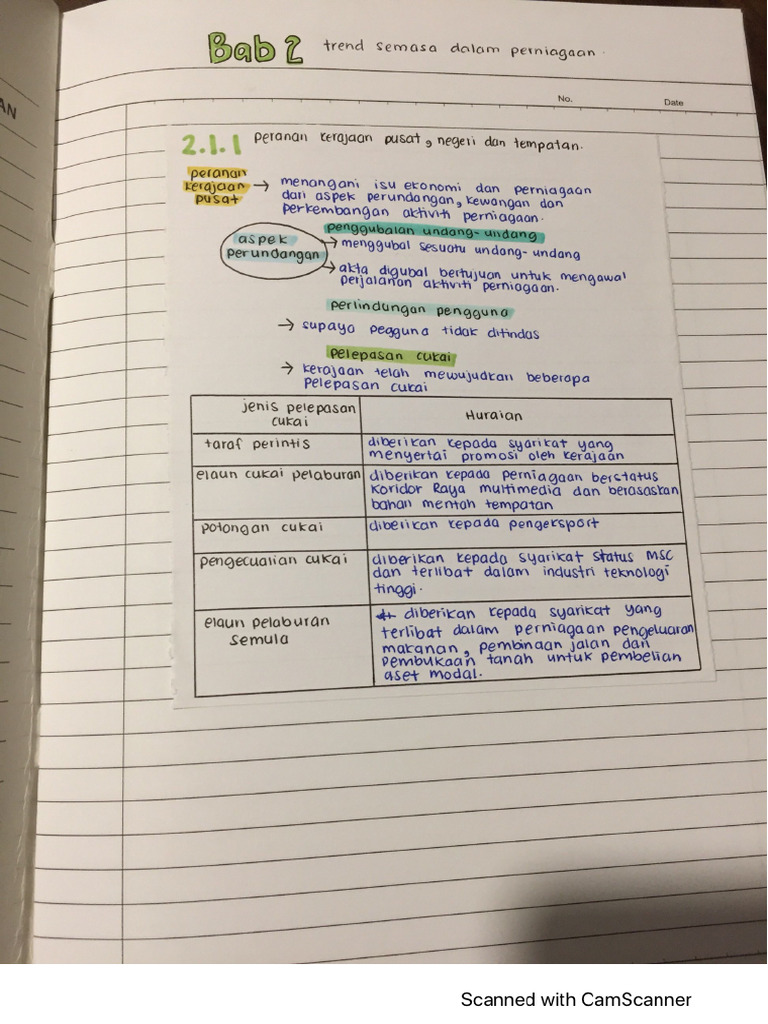 Bab 2 trend semasa dalam perniagaan.
No. Date
AN
2.1.1 peranan kerajaan pusat, negeri dan tempatan.
peranan
kerajaan
pusat
→ menangani isu ekonomi dan perniagaan
dari aspek perundangan, kewangan dan
perkembangan aktiviti perniagaan.
aspek
perundangan
penggubalan undang-undang
→ menggubal sesuatu undang-undang
→ akta digubal bertujuan untuk mengawal
perjalanan aktiviti perniagaan.
perlindungan pengguna
→ supaya pegguna tidak ditindas
pelepasan cukai
→ kerajaan telah mewujudkan beberapa
pelepasan cukai
jenis pelepasan
cukai
Huraian
taraf perintis
diberikan kepada syarikat yang
menyertai promosi oleh kerajaan
elaun cukai pelaburan
diberikan kepada perniagaan berstatus
Koridor Raya multimedia dan berasaskan
bahan mentah tempatan
potongan cukai
diberikan kepada pengeksport
pengecualian cukai
diberikan kepada syarikat status MSC
dan terlibat dalam industri teknologi
tinggi.
elaun pelaburan
semula
diberikan kepada syarikat yang
terlibat dalam perniagaan pengeluaran
makanan, pembinaan jalan dan
pembukaan tanah untuk pembelian
aset modal.
Scanned with CamScanner